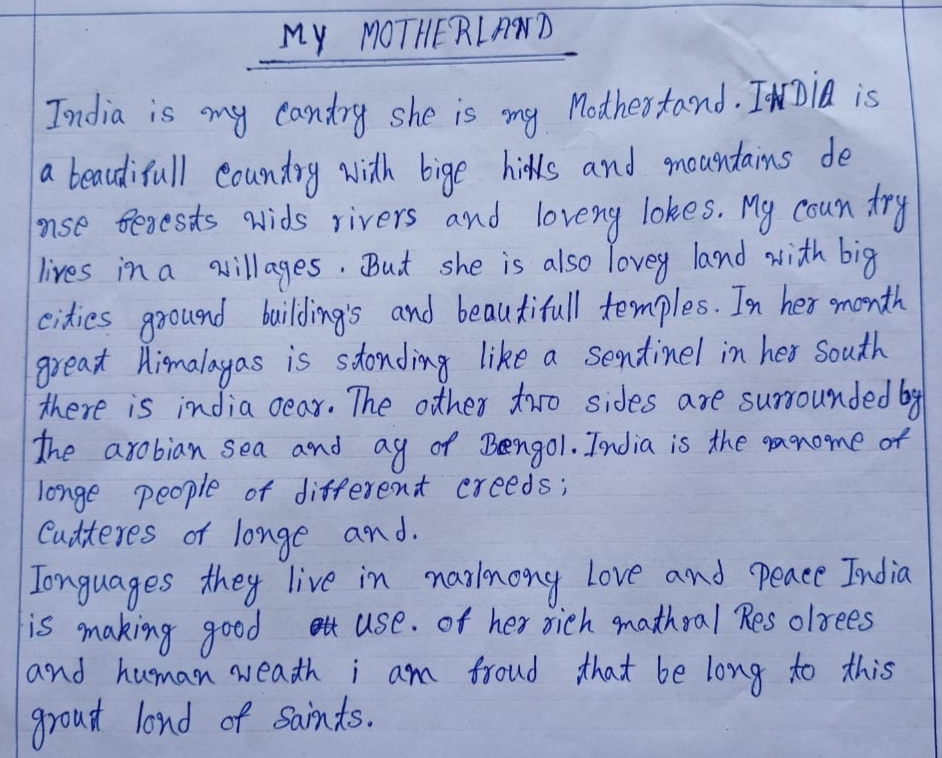 MY MOTHERLAND
India is my cantry she is my Mothertand. INDIA is
a beautifull country with bige hills and mountains de
nse ferests wids rivers and loveny lokes. My coun try
lives in a willages. But she is also lovey land with big
cities ground building's and beautifull temples. In her month
great Himalayas is stonding like a sentinel in her South
there is india ocar. The other two sides are surrounded by
the arobian sea and ay of Bengol. India is the nome of
longe people of different creeds;
Cutteres of longe and.
Ionguages they live in narlnony Love and peace India
is making good use. of her rich mathral Res olrees
and human weath i am froud that be long to this
grout lond of Saints.